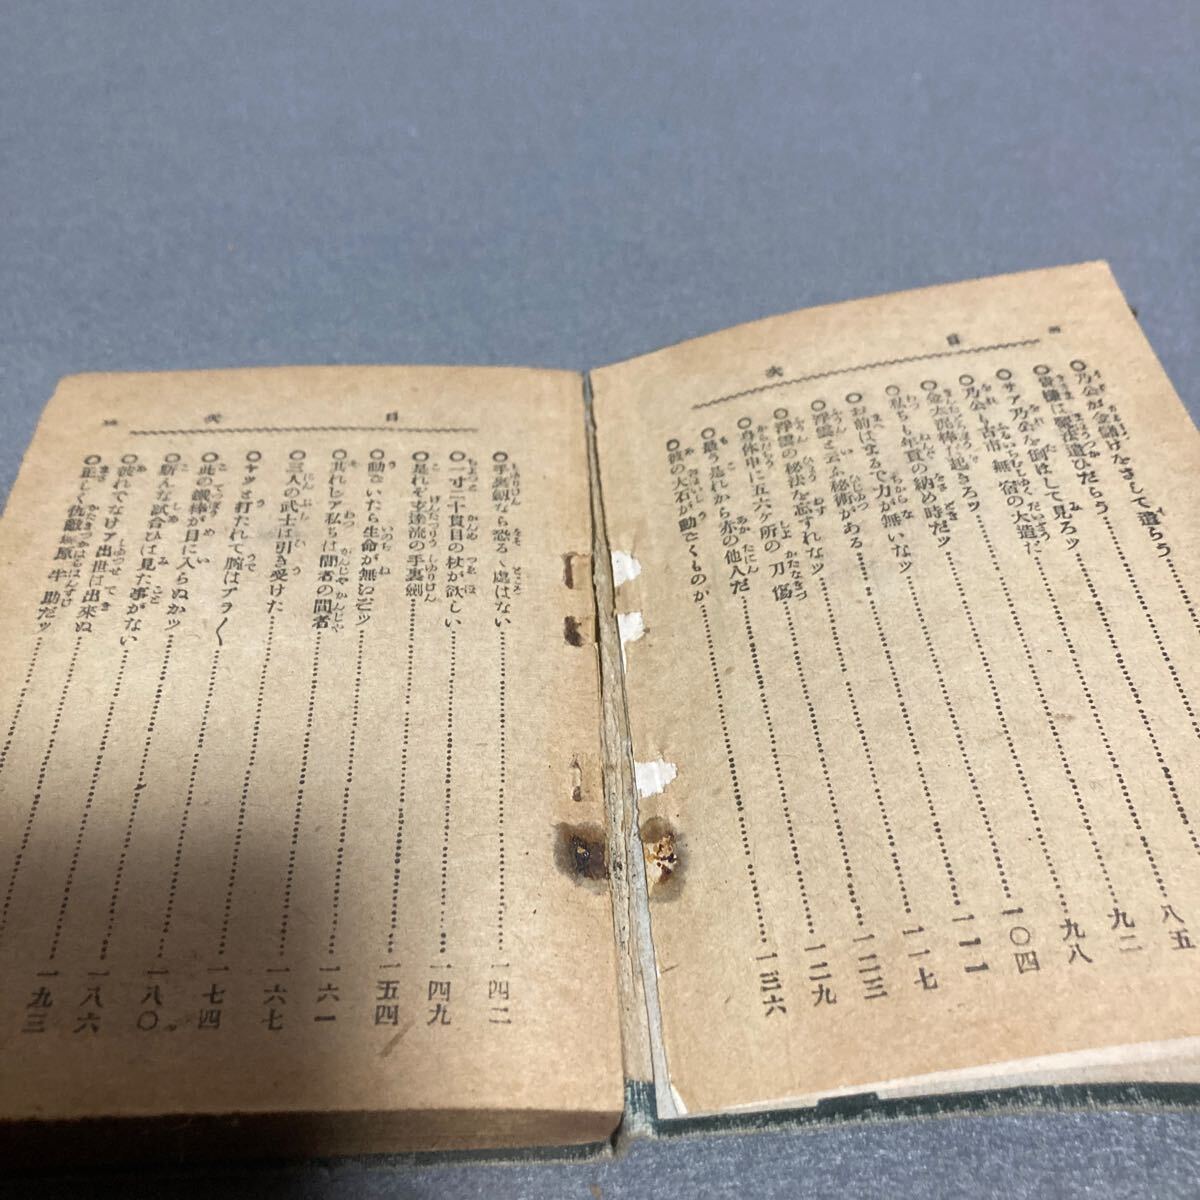 目次
◎乃公が金儲けをさして遣らう……八五
◎貴樣は魔法遣ひだらう……九二
◎サア乃公を倒ほして見ろッ……九八
◎乃公も古市無宿の大造だ……一〇四
◎金太流棒だ起きろッ……一一一
◎私ちも年貢の納め時だッ……一一七
◎お前はまるで力が無いなッ……一二三
◎浮雲と云ふ秘術がある……一二九
◎浮雲の秘法を忘ずれなッ
◎身体中に五六ヶ所の刀傷
◎最う是れから赤の他人だ……一三六
◎彼の大石が動くものか
目次
◎手裏劍なら恐るゝ處はない……一四二
◎一寸二十貫目の杖が欲しい……一四九
◎是れぞ玄達流の手裏劍
◎動いたら生命が無いぞッ……一五四
◎其れじア私ちは間者の間者……一六一
◎三人の武士は引き受けた……一六七
◎ヤッと打たれて腕はブラ〱……一七四
◎此の鐵棒が目に入らぬかッ……一八〇
◎斯んな試合ひは見た事がない……一八六
◎彼れでなけア出世は出來ぬ……一九三
◎正しく仇敵原牛助だッ